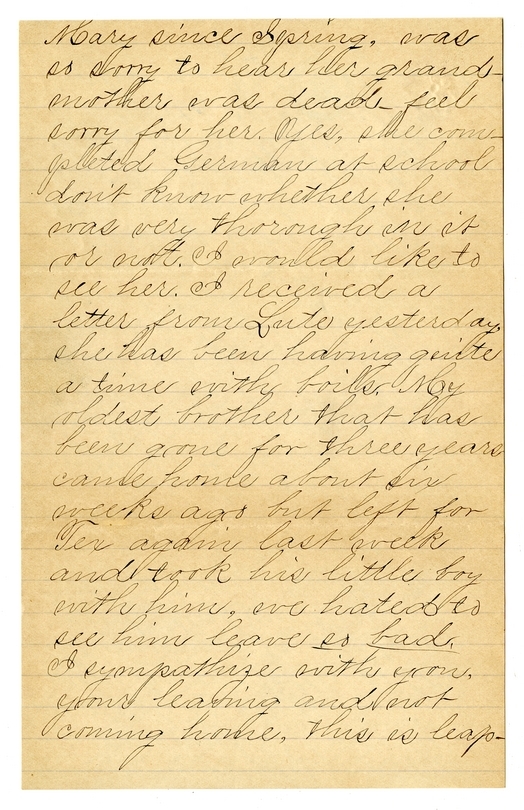 Mary since Spring, was
so sorry to hear her grand-
mother was dead - feel
sorry for her. Yes, she com-
pleted German at school
don't know whether she
was very thorough in it
or not. I would like to
see her. I received a
letter from Lute yesterday,
she has been having quite
a time with boils. My
oldest brother that has
been gone for three years
came home about six
weeks ago but left for
Tex again last week
and took his little boy
with him, we hated to
see him leave so bad.
I sympathize with you,
your leaving and not
coming home, this is leap-